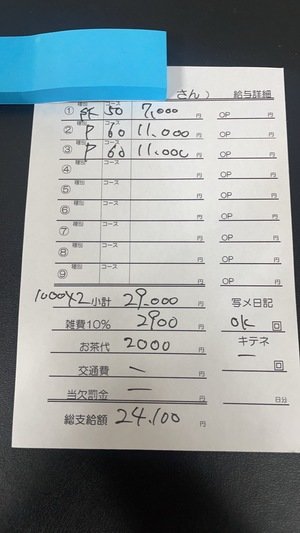 さん） 給与詳細
① 種別 PK コース 50 7,000 円 OP 円
② 種別 P コース 60 11,000 円 OP 円
③ 種別 P コース 60 11,000 円 OP 円
④ 種別 コース 円 OP 円
⑤ 種別 コース 円 OP 円
⑥ 種別 コース 円 OP 円
⑦ 種別 コース 円 OP 円
⑧ 種別 コース 円 OP 円
⑨ 種別 コース 円 OP 円
1000×2 小計 29,000 円 写メ日記
雑費10% 2900 円 OK 回
お茶代 2000 円 キテネ
交通費 ー 円 ー 回
当欠罰金 ー 円 日分
総支給額 24,100 円